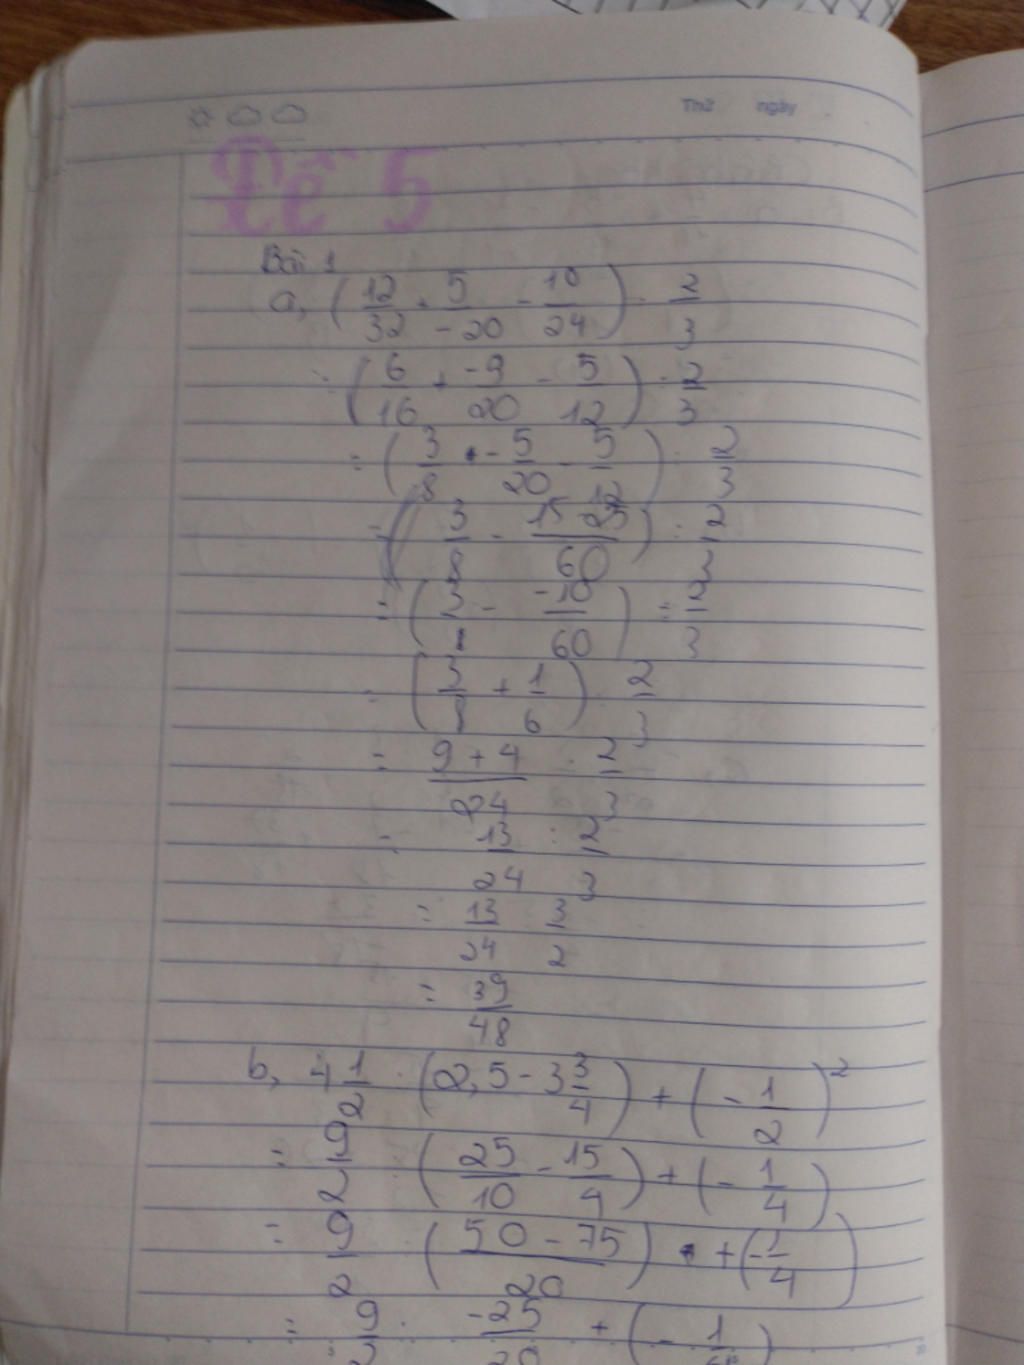 Thứ ngày
Đề 5
Bài 1
a, (12/32 + 5/-20 - 10/24) : 2/3
= (6/16 + -9/20 - 5/12) : 2/3
= (3/8 + -5/20 - 5/12) : 2/3
= (3/8 - 15-25/60) : 2/3
= (3/8 - -10/60) = 2/3
= (3/8 + 1/6) : 2/3
= 9+4/24 : 2/3
= 13/24 : 2/3
= 13/24 . 3/2
= 39/48
b, 4 1/2 . (2,5 - 3 3/4) + (-1/2)²
= 9/2 . (25/10 - 15/4) + (-1/4)
= 9/2 . (50-75/20) + (-1/4)
= 9/2 . -25/20 + (-1/4)